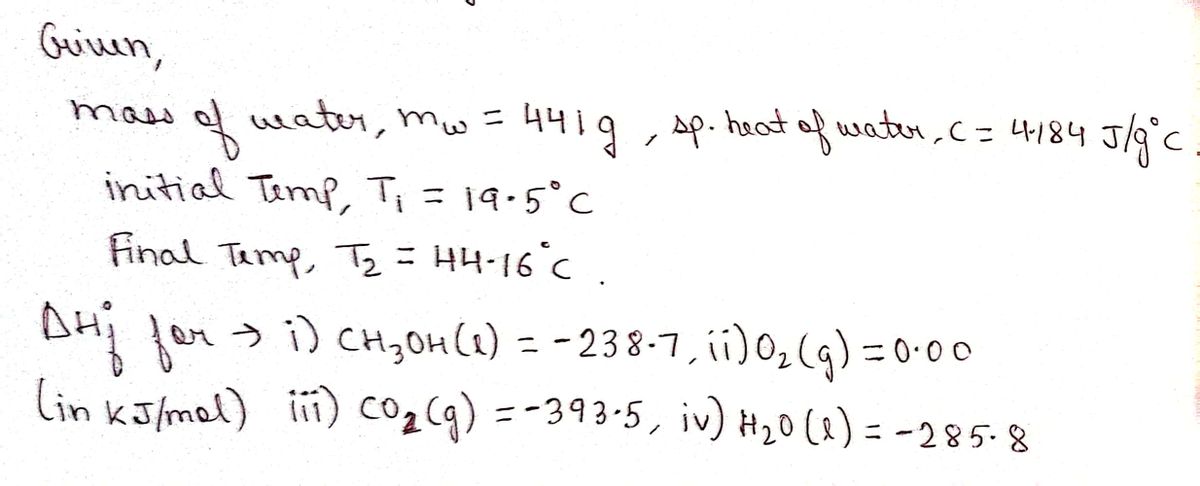 Given,
mass of water, m_w = 441g, sp. heat of water, C = 4.184 J/g°C.
initial Temp, T₁ = 19.5°C
Final Temp, T₂ = 44.16°C.
ΔH°f for → i) CH₃OH(l) = -238.7, ii) O₂(g) = 0.00
(in kJ/mol) iii) CO₂(g) = -393.5, iv) H₂O(l) = -285.8